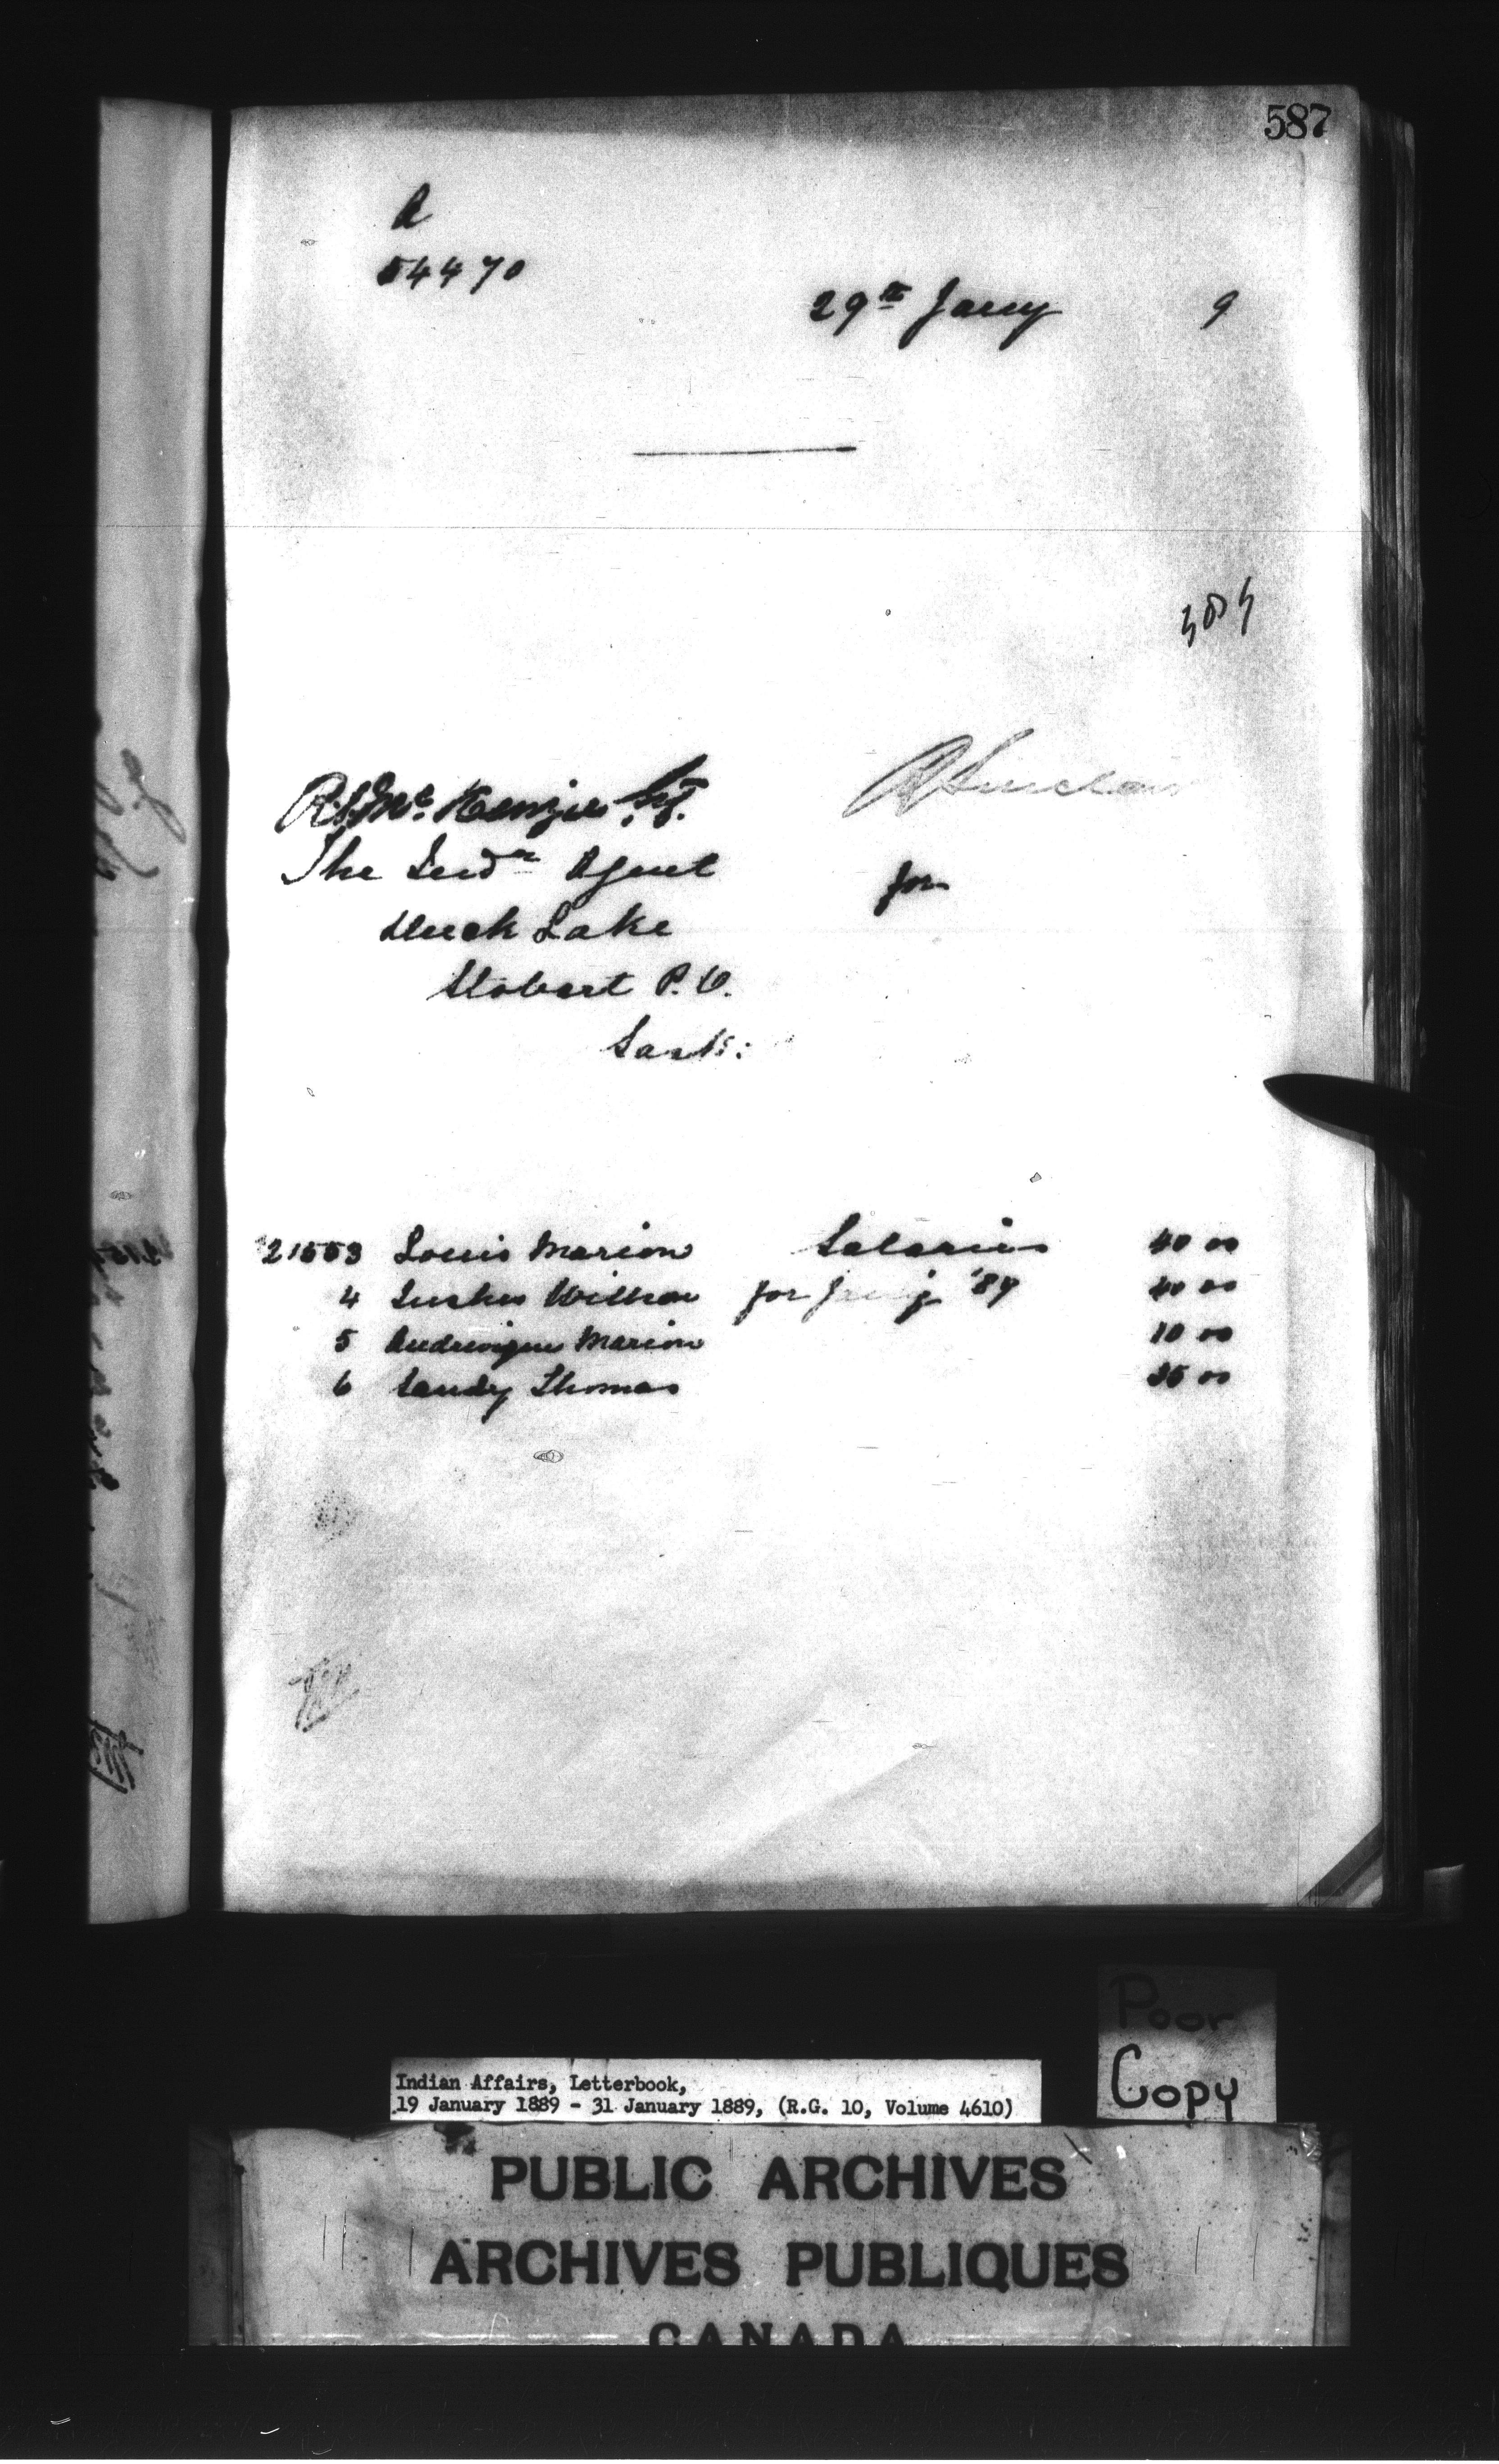 587
A
54470
29th Jany 9
R.S. McKenzie, Esq.
A Sinclair
The Indn Agent
for
Duck Lake
Stobart P.O.
Sask:
21553 Louis Marion Salaries 40 00
4 William for Jany '89 40 00
5 Marion 10 00
6 Sandy Thomas 35 00
Poor
Copy
Indian Affairs, Letterbook,
19 January 1889 - 31 January 1889, (R.G. 10, Volume 4610)
PUBLIC ARCHIVES
ARCHIVES PUBLIQUES
CANADA